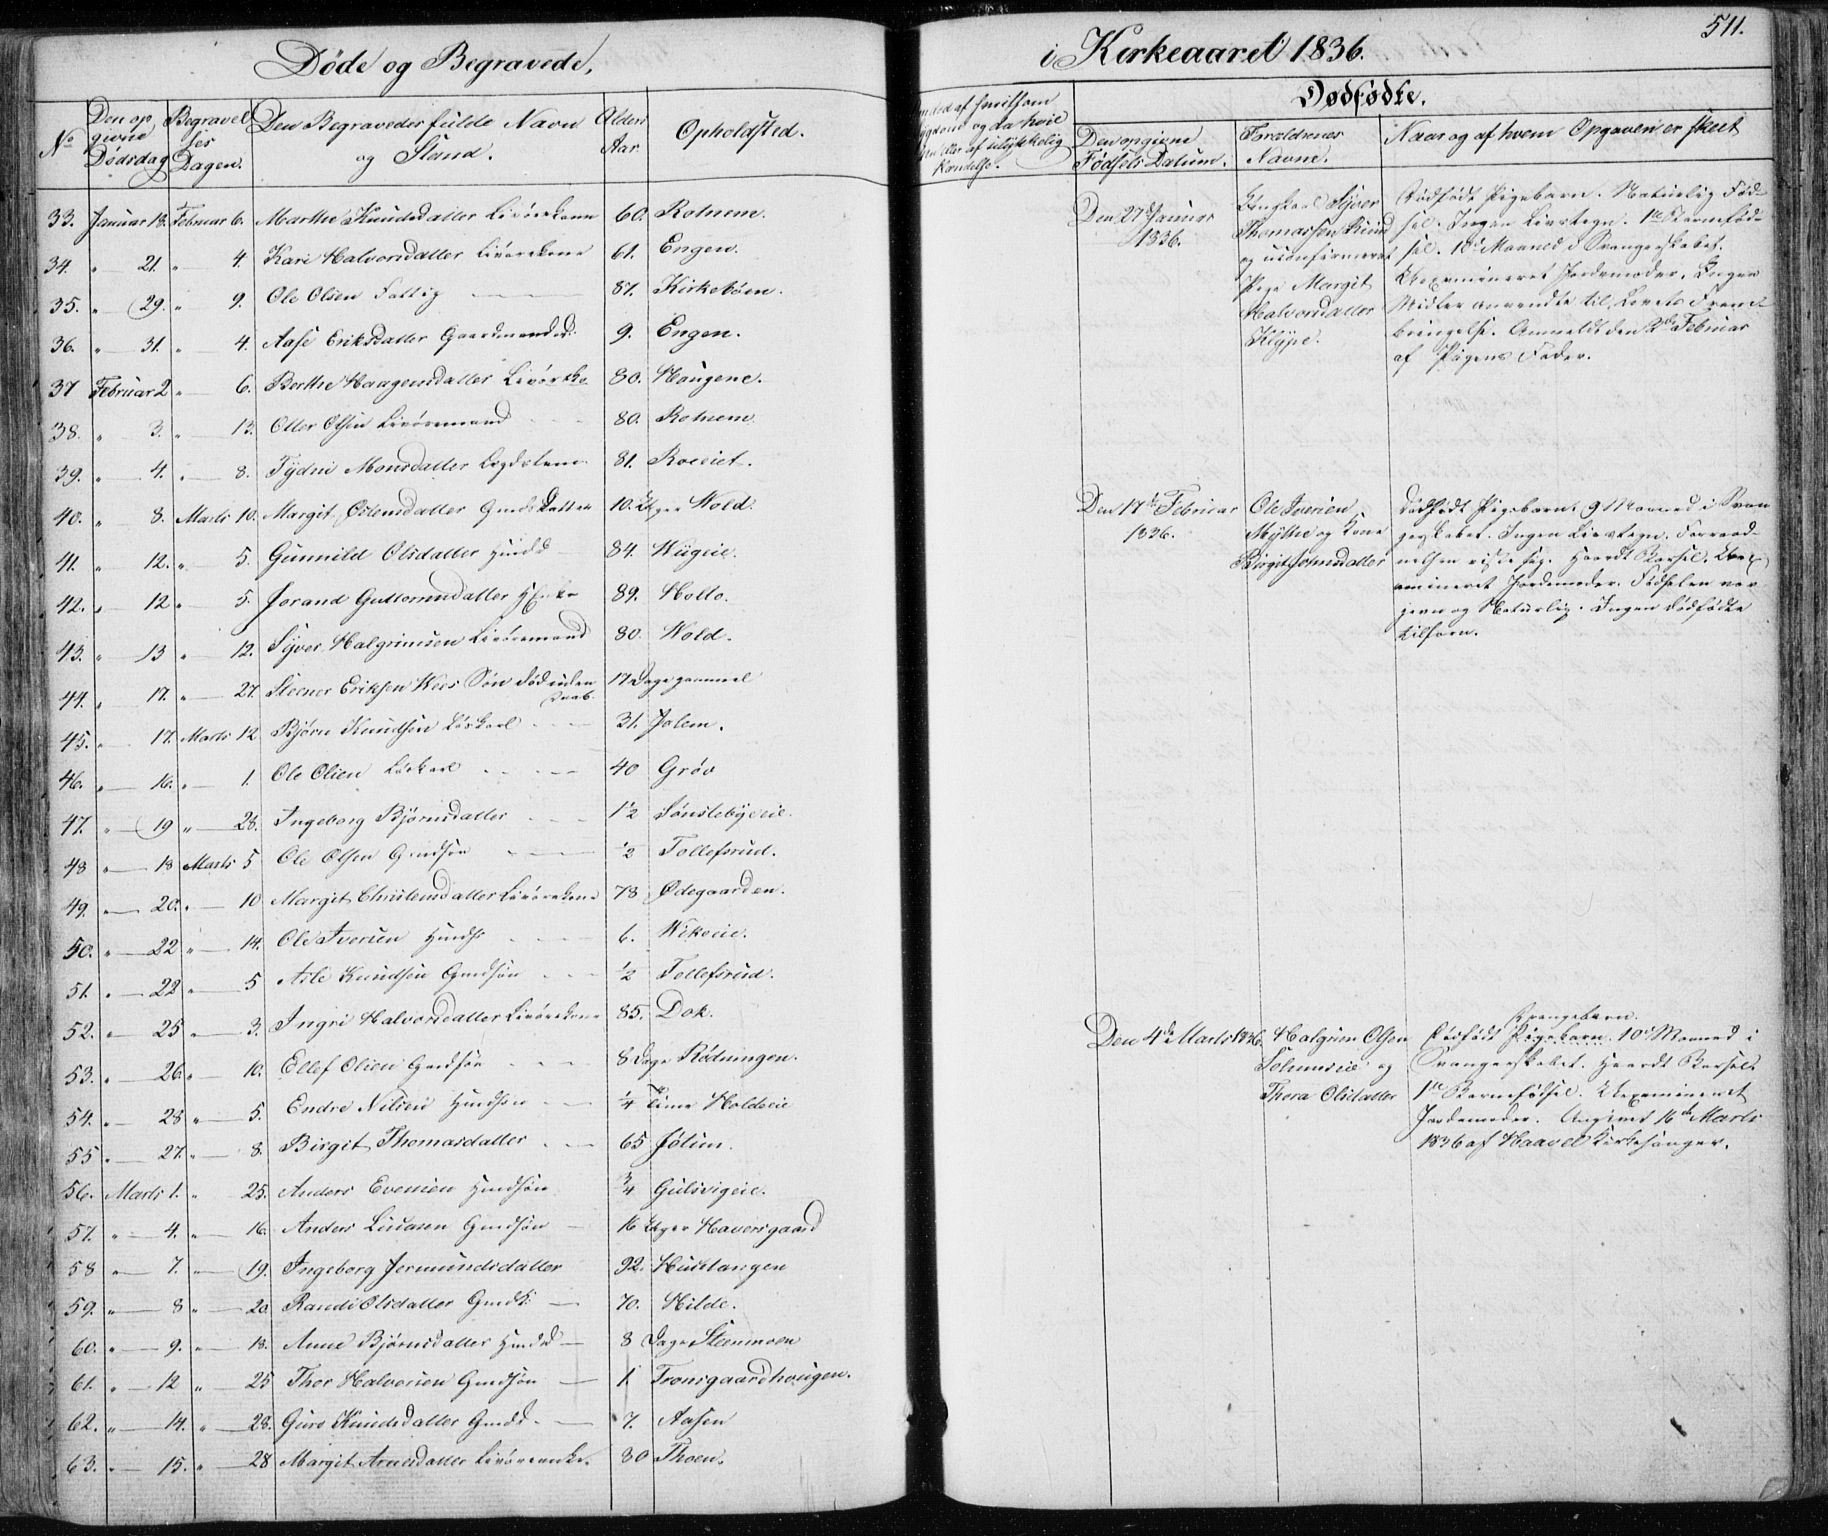 Døde og Begravede,
No Den opgivne Dødsdag Begravelses Dagen. Den Begravedes fulde Navn og Stand. Alder Aar. Opholdsted.
33. Januar 18. Februar 6. Marthe Knudsdatter Livørekone 60. Rotnem.
34. " 21. " 4. Kari Halvorsdatter Livørekone 61. Engen.
35. " 29. " 9. Ole Olsen Fattig 87. Kirkebøen.
36. " 31. " 4. Aase Eriksdatter 9. Engen.
37 Februar 2 " 6. Berthe Haagensdatter 80. Haugene.
38. " 3. " 13. Otter Olsen Livøremand 80. Rotnem
39. " 4. " 8. Monsdatter 81.
40. " 8. Marts 10. Margit 10. Uger Wold.
41. " 12. " 5. Gunnild Olsdatter 84. Wiigeie.
42. " 12 " 5. Jorand Guttormsdatter 89. Holto.
43. " 13 " 12. Syver Halgrimsen Livøremand 80. Wold.
44. " 17. " 27. Steener Eriksen Wees Søn død uden Daab. 17 Dage gammel
45. " 17. Marts 12 Bjørn Knudsen Løskarl 31. Jolem.
46. " 16. " 1. Ole Olsen Løskarl 40 Grøv
47. " 19 " 28. Ingeborg Bjørnsdatter 1½ Sønstebyeie.
48 " 18 Marts 5 Ole Olsen Gmdsøn ½ Tollefsrud.
49. " 20. " 10 Margit Christensdatter Livørekone 78 Ødegaarden.
50. " 22 " 14. Ole Iversen Hmdsøn 6. Wikeie.
51. " 22 " 5 Asle Knudsen Gmdsøn ½ Tollefsrud.
52. " 25 " 3. Ingri Halvorsdatter Livørekone 85. Dok.
53. " 26. " 10. Ellef Olsen Gmdsøn 8 Dage Rødningen.
54. " 28 " 5. Endre Nilsen Hmdsøn ¼ Time Holdeie
55 " 27. " 8. Birgit Thomasdatter 65 Jolim.
56. Marts 1. " 25. Anders Evensen Hmdsøn ¾ Gulsvigeie.
57. " 4. " 16. Anders Gmdsøn 16 Uger Haversgaard
58 " 7. " 19. Ingeborg Jermundsdatter 92. Huustangen
59. " 8 " 20 Randi Olsdatter Gmdk. 70. Hilde.
60. " 9. " 18. Anne Bjørnsdatter Hmdd 8 Dage Steenmoen
61. " 12 " 25 Thor Halvorsen Gmdsøn 1. Tronsgaardhougen.
62. " 14. " 28. Guro Knudsdatter Gmdd. 7. Aasen
63. " 15. " 28 Margit Arnesdatter Livørenke. 80 Thoen.
i Kirkeaaret 1836.
511.
Dødfødte.
Den opgivne Fødsels Datum. Forældrenes Navne. Naar og af hvem Opgaven er skeet
Den 27de Januar
1836.
Ungkarl Syver
Thomassen Rund
og uconfirmeret
Pige Margit
Halvorsdatter
Klype.
Dødfødt Pigebarn. Naturlig Fød-
sel. Ingen Livstegn. 1ste Barnefød-
sel. 10de Maaned i Svangerskabet.
Uexamineret Jordemoder. Ingen
Midler anvendte til Livets Frem-
bringelse. Anmeldt den 2de Februar
af Pigens Fader.
Den 17de Februar
1836.
Ole Iversen
Mythe og Kone
Birgit Johnsdatter
Dødfødt Pigebarn. 9 Maaned i Svan-
gerskabet. Ingen Livstegn. Forraad-
nelsen viste sig. Haardt Barsel. Uex-
amineret Jordemoder. Fødselen var
jevn og Naturlig. Ingen dødfødte
tilforn.
Den 4de Marts 1836.
Halgrim Olsen
og
Thora Olsdatter
Drengebarn.
Dødfødt Pigebarn. 10de Maaned i
Svangerskabet. Haardt Barsel.
1ste Barnefødsel. Uexamineret
Jordemoder. Angivet 16de Marts
1836 af Haavel Kirkesanger.